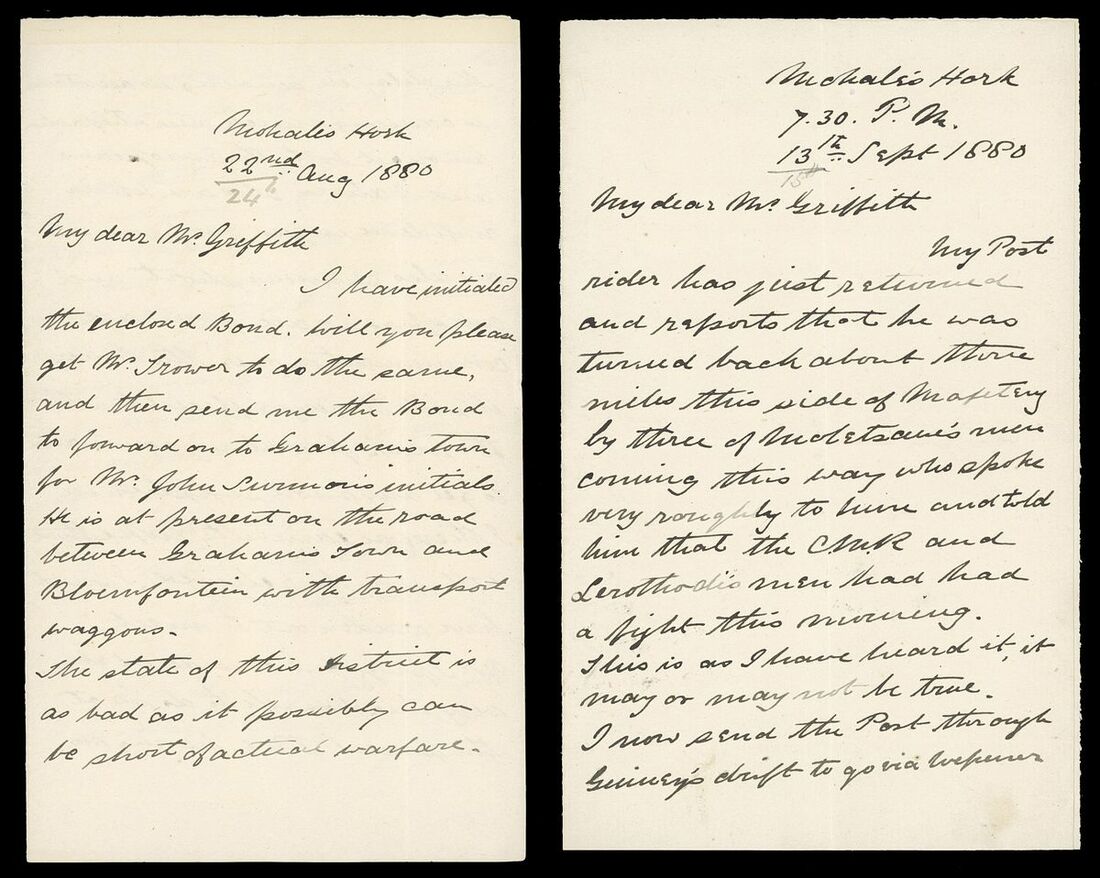 Mohali's Hoek
22nd Aug 1880
24th
My dear Mr. Griffith
I have initialed
the enclosed Bond. Will you please
get Mr. Trower to do the same,
and then send me the Bond
to forward on to Graham's town
for Mr. John initials.
He is at present on the road
between Graham's Town and
Bloemfontein with transport
waggons.
The state of this District is
as bad as it possibly can
be short of actual warfare.
Mohale's Hoek
7.30. P. M.
13th Sept 1880
15th
My dear Mr. Griffith
My Post
rider has just returned
and reports that he was
turned back about three
miles this side of Mafeteng
by three of Moletsane's men
coming this way who spoke
very roughly to him and told
him that the CMR and
Lerothodi's men had had
a fight this morning.
This is as I have heard it, it
may or may not be true.
I now send the Post through
drift to go via Wepener